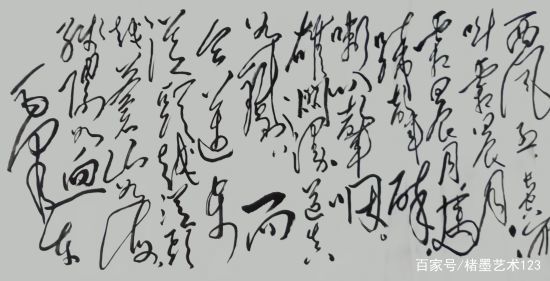 西风烈长空
叫霜晨月
霜晨月马
蹄声碎
喇叭声咽
雄关漫道真
如铁而
今迈步
从头越从头
越苍山如海
残阳如血
百家号/楮墨艺术123